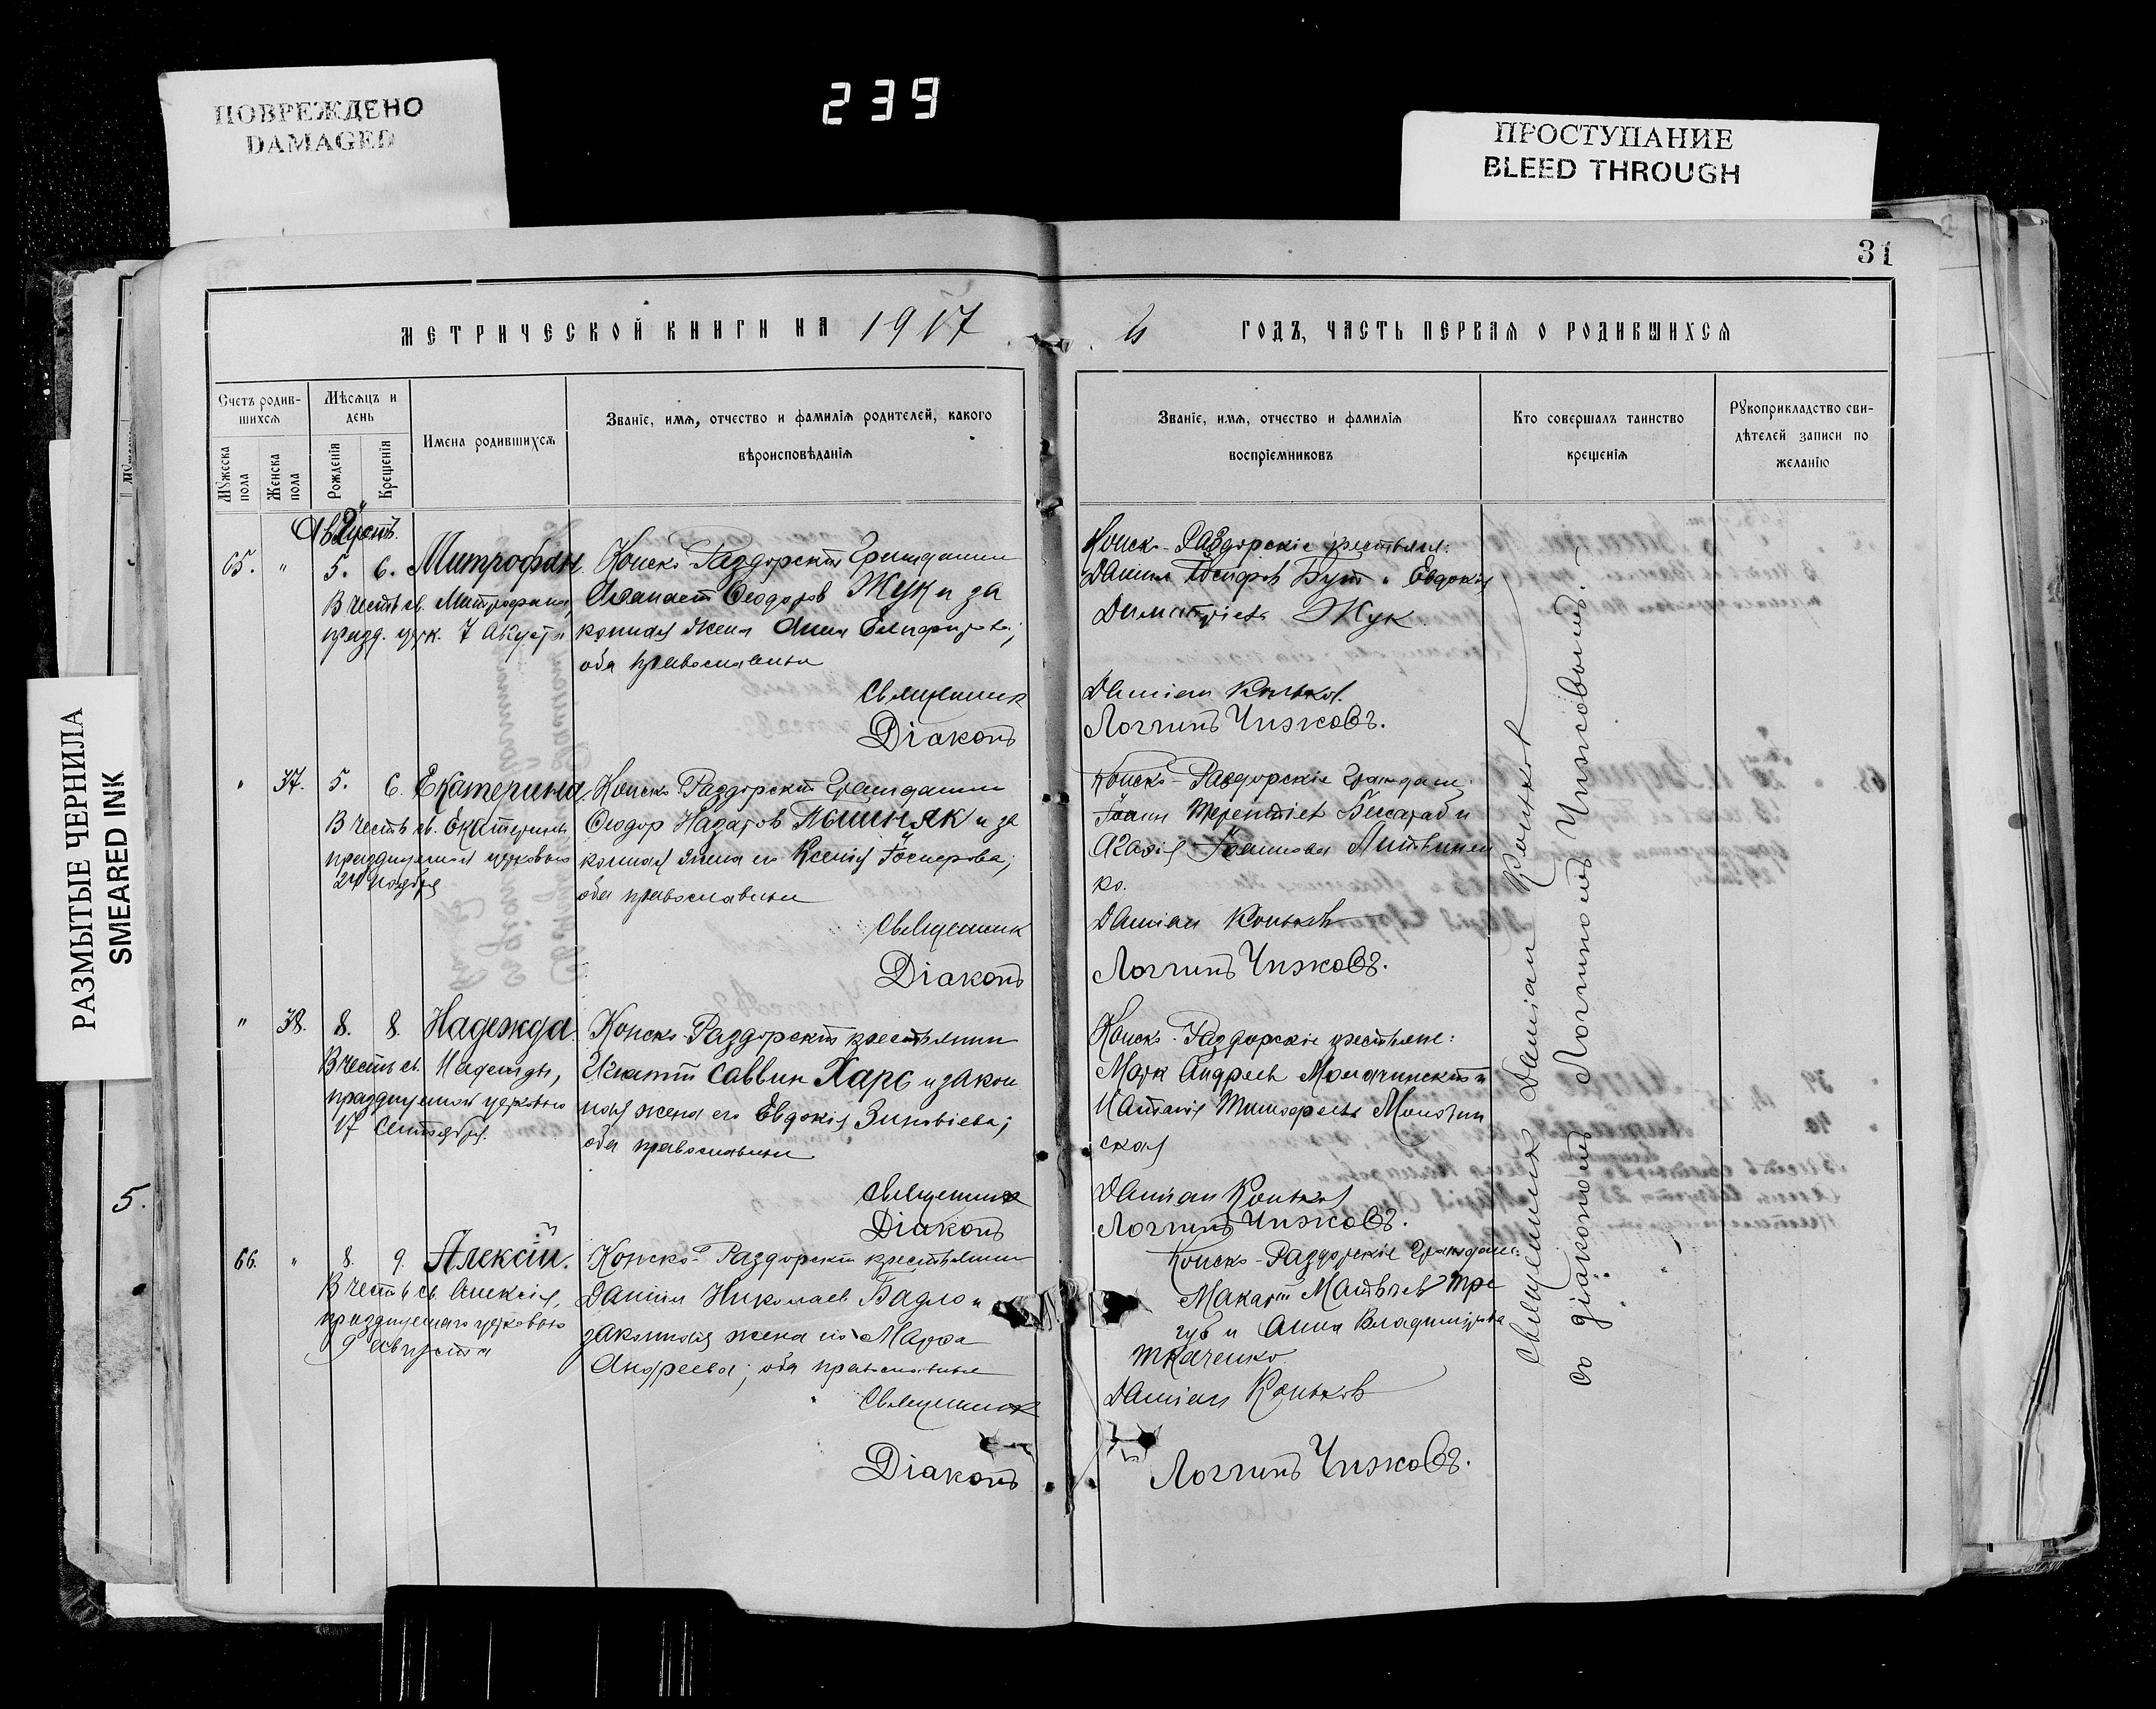 ПОВРЕЖДЕНО
DAMAGED
239
ПРОСТУПАНИЕ
BLEED THROUGH
РАЗМЫТЫЕ ЧЕРНИЛА
SMEARED INK
5.
31
МЕТРИЧЕСКОЙ КНИГИ НА 1917
й ГОДЪ, ЧАСТЬ ПЕРВАЯ О РОДИВШИХСЯ
Счетъ родив-
шихся
Мужеска
пола
Женска
пола
Мѣсяцъ и
день
Рожденія
Крещенія
Имена родившихся
Званіе, имя, отчество и фамилія родителей, какого
вѣроисповѣданія
Званіе, имя, отчество и фамилія
воспріемниковъ
Кто совершалъ таинство
крещенія
Рукоприкладство сви-
дѣтелей записи по
желанію
Августъ.
65. " 5. 6. Митрофан.
В честь св. Митрофана,
празд. церк. 7 Августа
Конско-Раздорскій Гражданин
Афанасій Феодоров Жук и за
конная жена Анна
оба православны
Священник
Діаконъ
Конско-Раздорскіе крестьяне:
Даниил Іосифов Бут и Евдокія
Димитріева Жук
Даміан Коньков
Логгинъ Чижовъ.
" 37. 5. 6. Екатерина.
В честь св. Екатерины
празднуемой церковью
24 Ноября
Конско-Раздорскій Гражданин
Феодор Назаров и за
конная жена его Ксенія Іосифова;
оба православны
Священник
Діаконъ
Конско-Раздорскіе Граждане:
Іоанн Терентіев Бесараб и
Агафія Іоаннова Литвинен
ко.
Даміан Коньков
Логгинъ Чижовъ.
" 38. 8. 8. Надежда.
В честь св. Надежды,
празднуемой церковью
17 Сентября.
Конско-Раздорскій крестьянин
Игнатій Саввин Харс и закон
ная жена его Евдокія Зиновіева;
оба православны
Священник
Діаконъ
Конско-Раздорскіе крестьяне:
Марк Андреев и
Наталія Тимофеева
ская
Даміан Коньков
Логгинъ Чижовъ.
66. " 8. 9. Алексій.
В честь св. Алексія,
празднуемаго церковью
9 Августа
Конско-Раздорскій крестьянин
Даніил Николаев Бадло и
законная жена его Марфа
Андреева; оба православные
Священник
Діаконъ
Конско-Раздорскіе Граждане:
Макарій Матвѣев Тре
губ и Анна Владимірова
Ткаченко
Даміан Коньков
Логгинъ Чижовъ.
Священник Даміан Коньков
съ діакономъ Логгиномъ Чижовымъ.